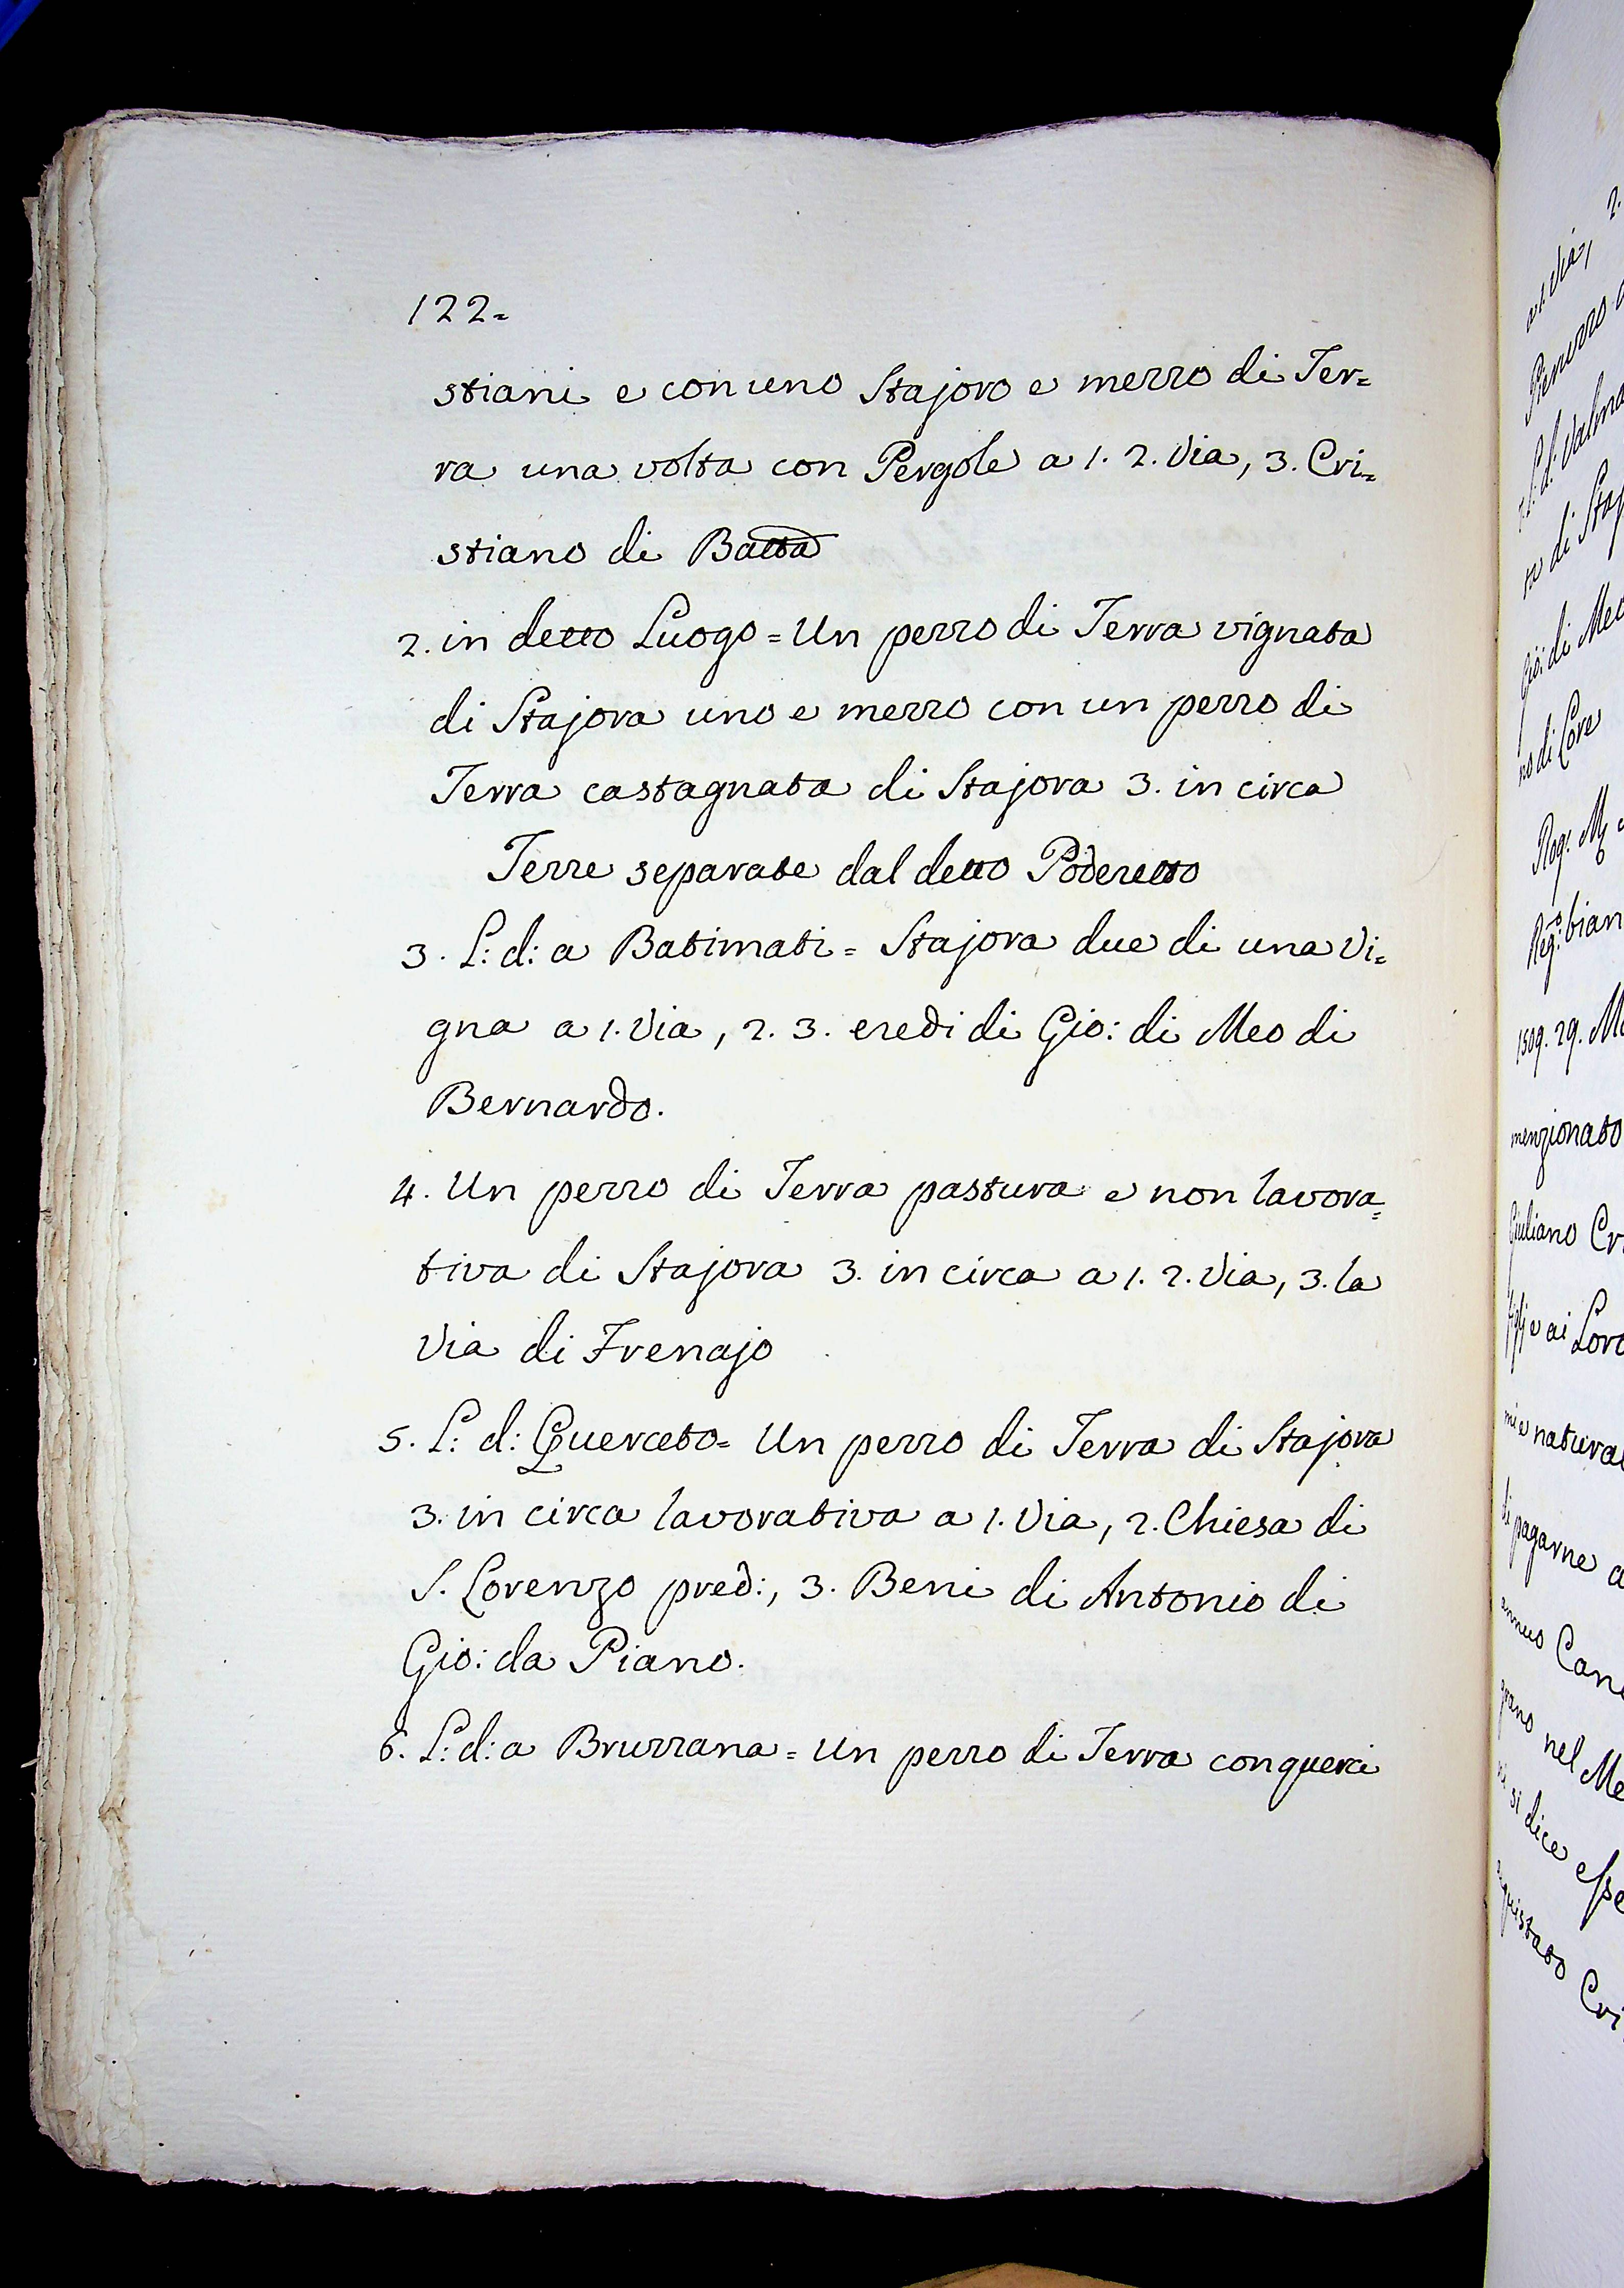 122=
stiani e con uno Stajoro e mezzo di Ter=
ra una volta con Pergole a 1. 2. Via, 3. Cri=
stiano di Batta
2. in detto Luogo = Un pezzo di Terra vignata
di Stajora uno e mezzo con un pezzo di
Terra castagnata di Stajora 3. in circa
Terre separate dal detto Poderetto
3. L: d: a Batimati = Stajora due di una Vi=
gna a 1. Via, 2. 3. eredi di Gio: di Meo di
Bernardo.
4. Un pezzo di Terra pastura e non lavora=
tiva di Stajora 3. in circa a 1. 2. Via, 3. la
Via di Frenajo
5. L: d: Querceto = Un pezzo di Terra di Stajora
3. in circa lavorativa a 1. Via, 2. Chiesa di
S. Lorenzo pred:, 3. Beni di Antonio di
Gio: da Piano.
6. L: d: a Bruzzana = Un pezzo di Terra con querci
a 1. Via, 2.
L: d: Valma
di Staj
Gio: di Meo
no di Lore
Rog: M
1509. 29. M
menzionato
Giuliano Cr
figlj e ai Loro
mi e natural
di pagarne a
annuo Can
grano nel Me
si dice esse
Cri